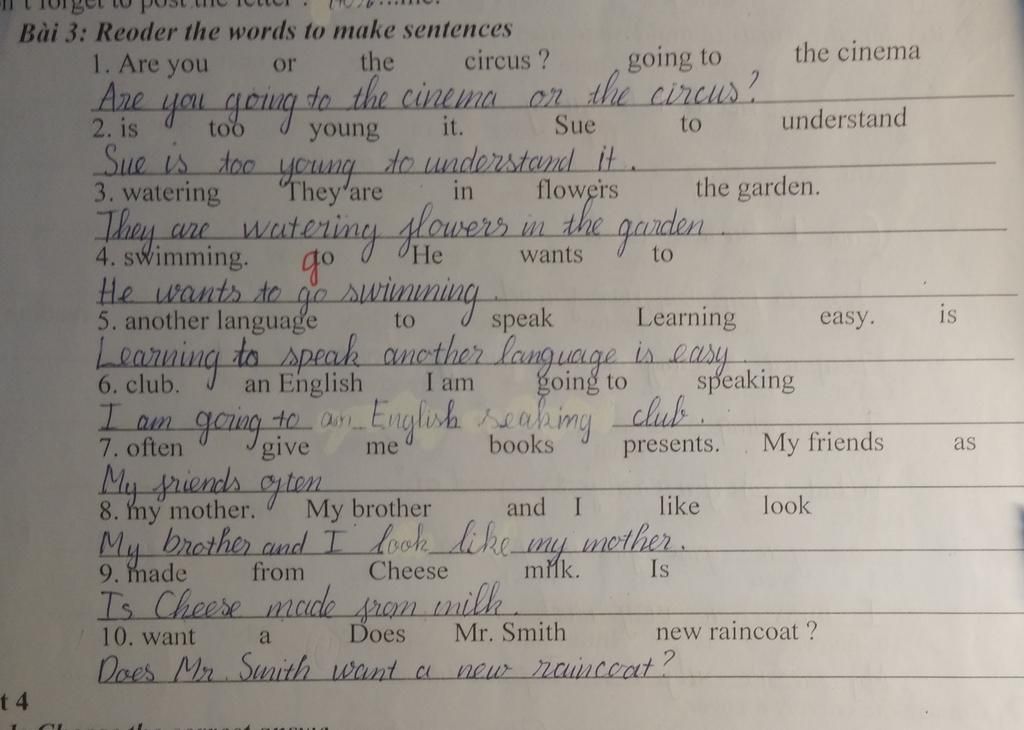 forget to post the letter
Bài 3: Reoder the words to make sentences
1. Are you or the circus ? going to the cinema
Are you going to the cinema or the circus?
2. is too young it. Sue to understand
Sue is too young to understand it.
3. watering They are in flowers the garden.
They are watering flowers in the garden.
4. swimming. go He wants to
He wants to go swimming.
5. another language to speak Learning easy. is
Learning to speak another language is easy.
6. club. an English I am going to speaking
I am going to an English seaking club.
7. often give me books presents. My friends as
My friends often
8. my mother. My brother and I like look
My brother and I look like my mother.
9. made from Cheese milk. Is
Is Cheese made from milk.
10. want a Does Mr. Smith new raincoat ?
Does Mr. Smith want a new raincoat?
t 4